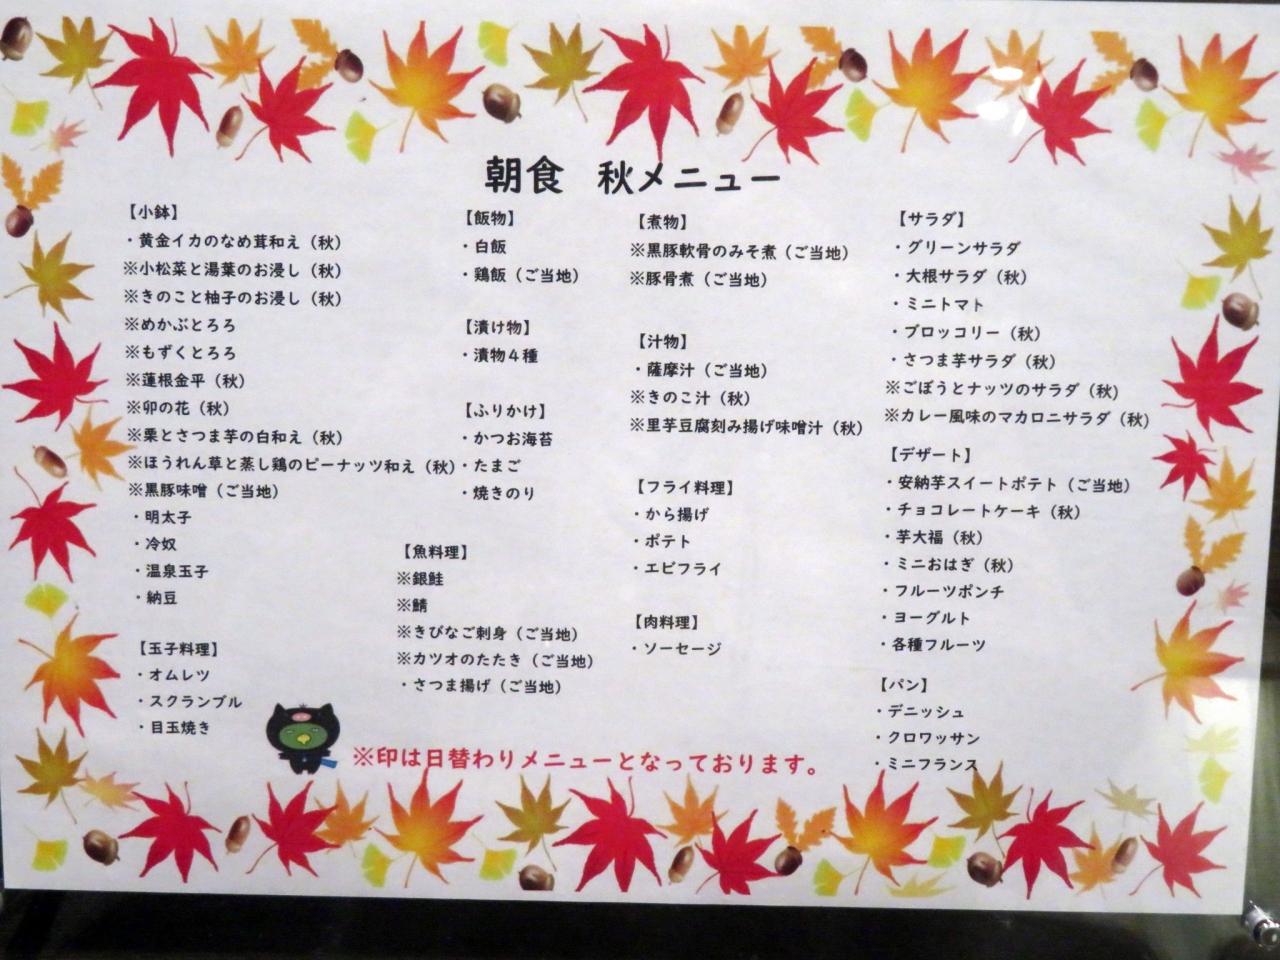 朝食 秋メニュー
【小鉢】
・黄金イカのなめ茸和え（秋）
※小松菜と湯葉のお浸し（秋）
※きのこと柚子のお浸し（秋）
※めかぶとろろ
※もずくとろろ
※蓮根金平（秋）
※卯の花（秋）
※栗とさつま芋の白和え（秋）
※ほうれん草と蒸し鶏のピーナッツ和え（秋）
※黒豚味噌（ご当地）
・明太子
・冷奴
・温泉玉子
・納豆
【玉子料理】
・オムレツ
・スクランブル
・目玉焼き
【飯物】
・白飯
・鶏飯（ご当地）
【漬け物】
・漬物４種
【ふりかけ】
・かつお海苔
・たまご
・焼きのり
【魚料理】
※銀鮭
※鯖
※きびなご刺身（ご当地）
※カツオのたたき（ご当地）
・さつま揚げ（ご当地）
【煮物】
※黒豚軟骨のみそ煮（ご当地）
※豚骨煮（ご当地）
【汁物】
・薩摩汁（ご当地）
※きのこ汁（秋）
※里芋豆腐刻み揚げ味噌汁（秋）
【フライ料理】
・から揚げ
・ポテト
・エビフライ
【肉料理】
・ソーセージ
【サラダ】
・グリーンサラダ
・大根サラダ（秋）
・ミニトマト
・ブロッコリー（秋）
・さつま芋サラダ（秋）
※ごぼうとナッツのサラダ（秋）
※カレー風味のマカロニサラダ（秋）
【デザート】
・安納芋スイートポテト（ご当地）
・チョコレートケーキ（秋）
・芋大福（秋）
・ミニおはぎ（秋）
・フルーツポンチ
・ヨーグルト
・各種フルーツ
【パン】
・デニッシュ
・クロワッサン
・ミニフランス
※印は日替わりメニューとなっております。